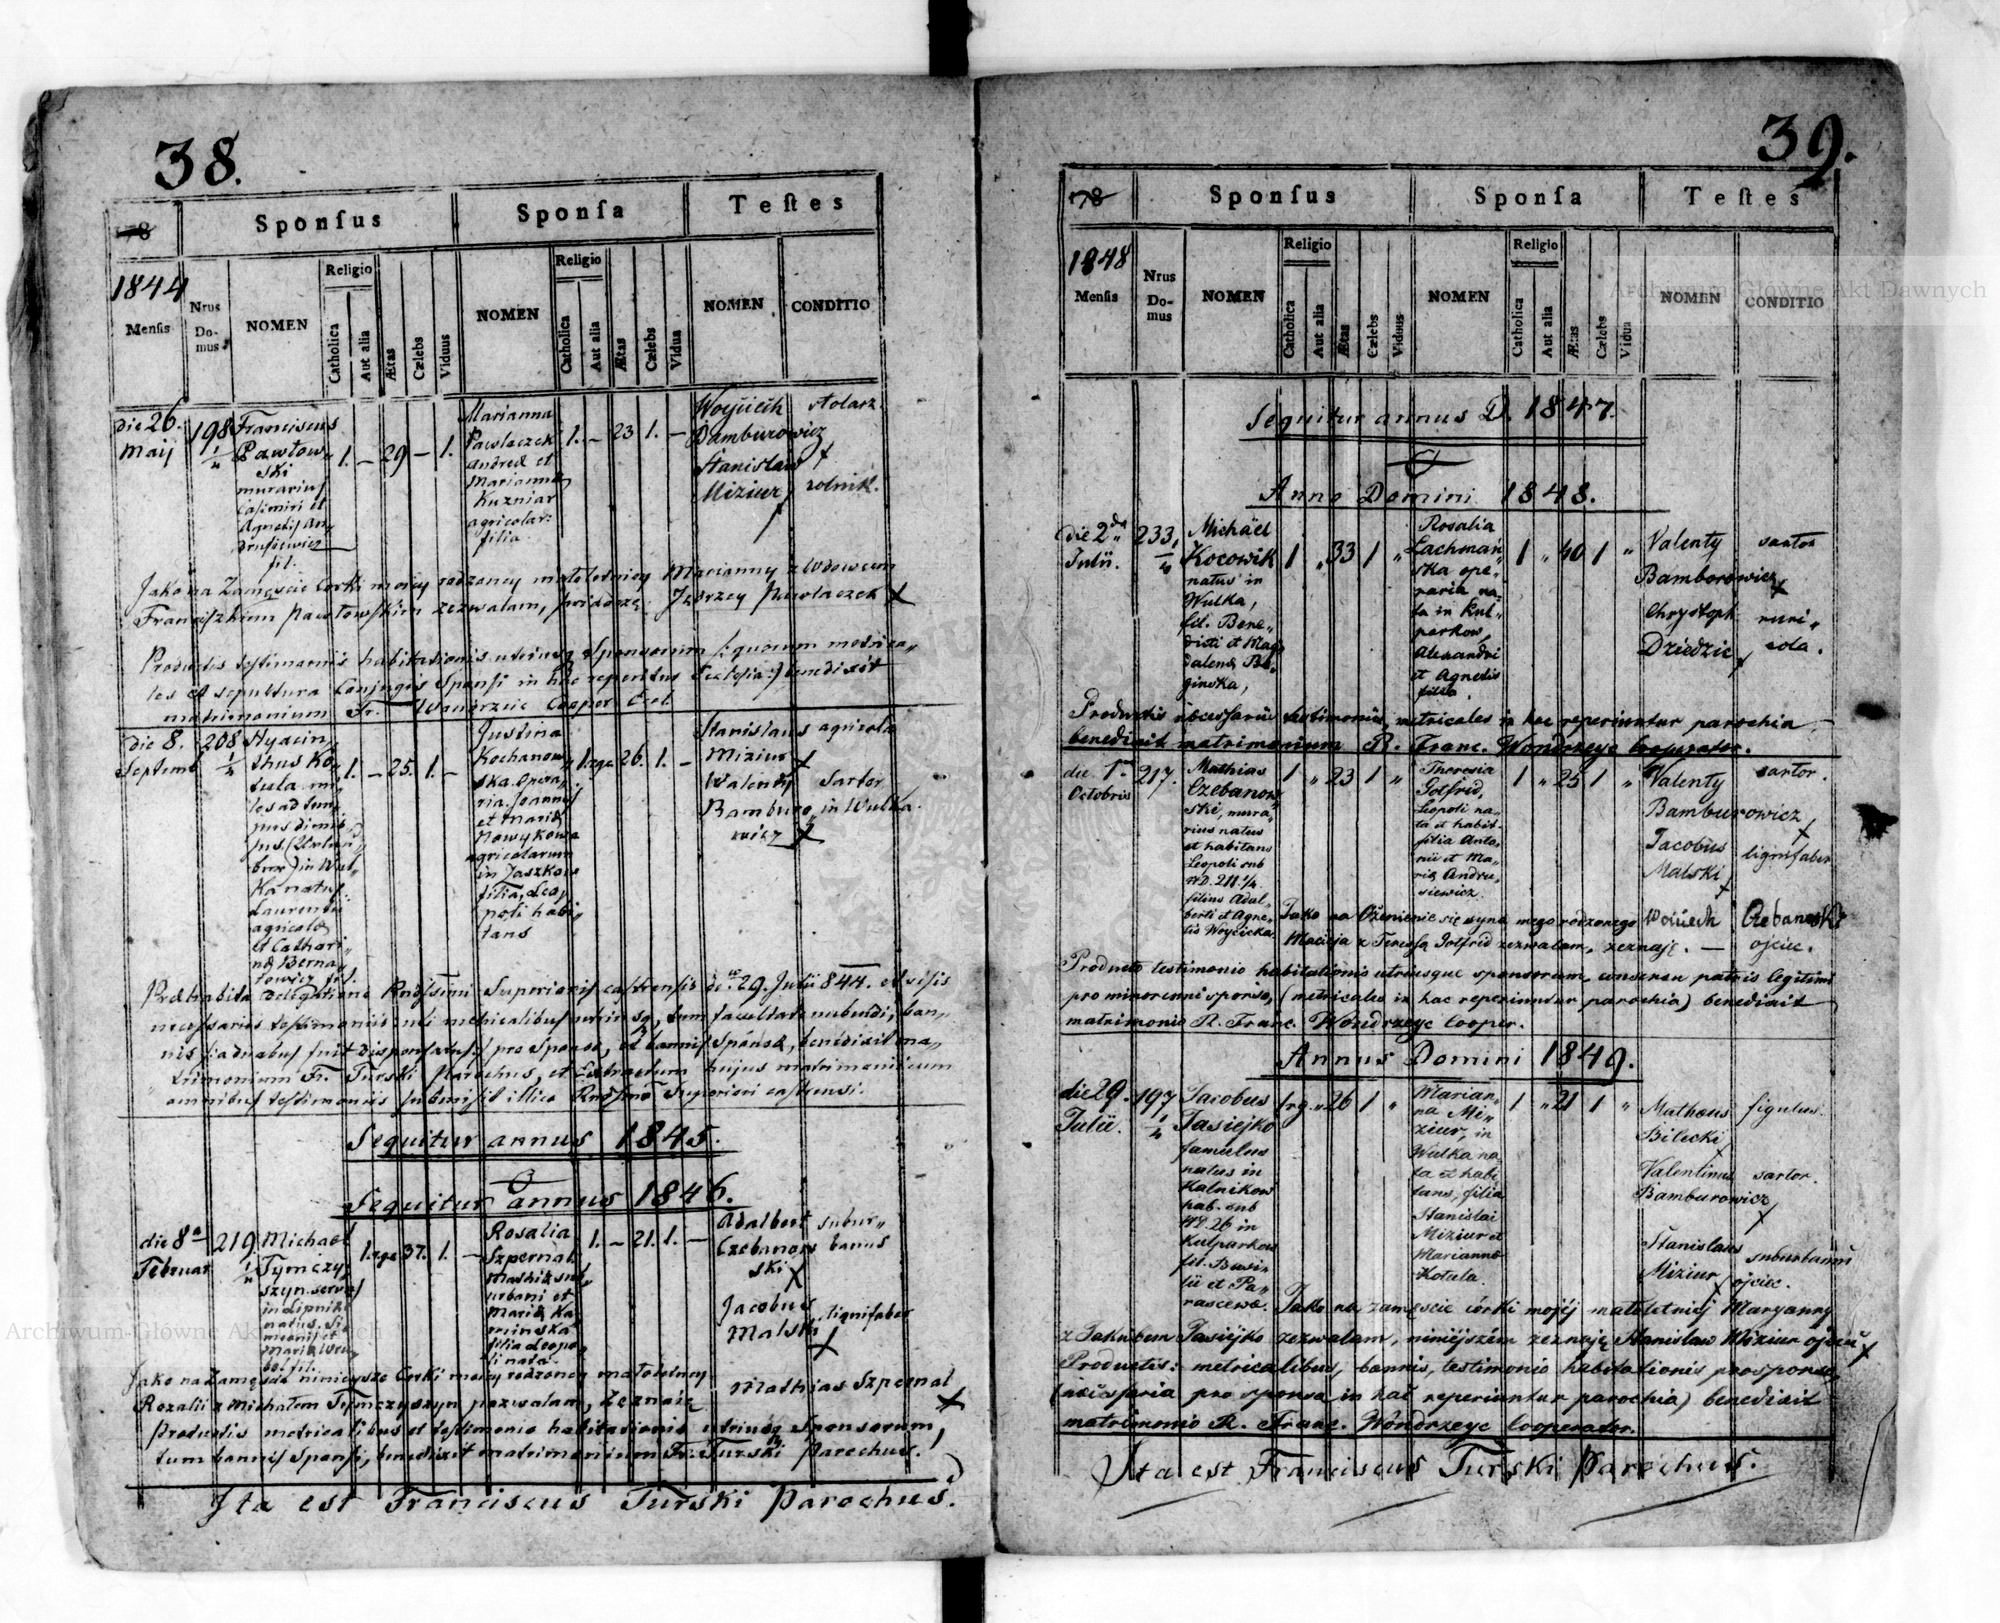 38.
78
Sponſus
Sponſa
Teſtes
1844
Menſis
Nrus
Do-
mus
NOMEN
Religio
Catholica
Aut alia
Ætas
Cælebs
Viduus
NOMEN
Religio
Catholica
Aut alia
Ætas
Cælebs
Vidua
NOMEN
CONDITIO
die 26.
Maij
198
1/4
Franciscus
Pawłow„
ski
murarius
Casimiri et
Agnetis An„
drusiewicz
fil.
1. – 29 – 1.
Marianna
Pawlaczek
Andreæ et
Mariannæ
Kuzniar
agricolar:
filia
1. – 23 1. –
Woyciech
Bamburowicz
Stanisław
Miziur
stolarz
rolnik.
Jako na Zamęscie Corki mojey rodzoney małoletniey Marianny z Wdowcem
Franciszkiem Pawłowskim zezwalam, swiadczę. Jędrzey Pawlaczek X
Productis testimoniis habitationis utriusq Sponsorum (: quorum metrica„
les et sepultura Conjugis Sponsi in hac reperitur Ecclesia :) benedixit
matrimonium Fr. Wondrzeic Cooper Eccl.
die 8.
Septemb
208
1/4
Hyacin„
thus Ko„
tula mi„
les ad tem„
pus dimis„
sus (Urlau„
ber) in Wul„
ka natus
Laurentii
agricolæ
et Cathari„
næ Berna„
towicz fil.
1. – 25. 1. –
Justina
Kochanow„
ska Opera„
ria Joannis
et Mariæ
Nowykowa
agricolarum
in Zaszkow
filia, Leo„
poli habi„
tans
1. rgr 26. 1. –
Stanislaus
Miziur X
Walenty
Bamburo„
wicz X
agricola
Sartor
in Wulka.
Præhabita Delegatione Rndssimi Superioris castrensis dto 29. Julii 844. et visis
necessariis testimoniis uti metricalibus utriusq, tum facultate nubendi, ban„
nis (a duabus fuit dispensatus) pro Sponso, et bannis Sponsæ, benedixit ma„
trimonium Fr. Turski Parochus, et Extractum hujus matrimonii cum
omnibus testimoniis submisit illico Rndssimo Superiori castrensi.
Sequitur annus 1845.
Sequitur annus 1846.
die 8a
Februar
219
1/4
Michael
Tymczy„
szyn servus
in Lipniki
natus, Si„
meonis et
Mariæ Wru„
bel fil.
1. rgr 37. 1. –
Rosalia
Szpernal
Mathiæ sub„
urbani et
Mariæ Ka„
minska
filia Leopo„
li nata
1. – 21. 1. –
Adalbert
Czebanow
ski X
Jacobus
Malski X
subur„
banus
lignifaber
Jako na Zamęscie niniejsze Corki mojey rodzoney małoletniey
Rozalii z Michałem Tymczyszyn pozwalam, Zeznaię Mathias Szpernal X
Productis metricalibus et testimonio habitationis utriusq Sponsorum,
tum bannis Sponsi, benedixit matrimonium Fr: Turski Parochus.
Ita est Franciscus Turski Parochus.
39.
78
Sponſus
Sponſa
Teſtes
1848
Menſis
Nrus
Do-
mus
NOMEN
Religio
Catholica
Aut alia
Ætas
Cælebs
Viduus
NOMEN
Religio
Catholica
Aut alia
Ætas
Cælebs
Vidua
NOMEN
CONDITIO
Sequitur annus D. 1847.
Anno Domini 1848.
die 2da
Julii.
233
1/4
Michäel
Kocowik
natus in
Wulka,
fil. Bene„
dicti et Mag„
dalenæ Ba„
ginska,
1 „ 33 1 „
Rosalia
Lachman„
ska ope„
raria na„
ta in Kul„
parkow,
Alexandri
et Agnetis
filia.
1 „ 40 1 „
Valenty
Bamborowicz X
Chrystoph
Dziedzic
sartor
ruri„
cola.
Productis necessariis testimoniis, metricales in hac reperiuntur parochia
benedixit matrimonium R. Franc. Wondrzeyc Cooperator.
die 1ma
Octobris
217.
Mathias
Czebanow
ski, mura„
rius natus
et habitans
Leopoli sub
ND. 211 1/4.
filius Adal„
berti et Agne„
tis Woycicka.
1 „ 23 1 „
Theresia
Gotfrid,
Leopoli na„
ta et habit.
filia Anto„
nii et Ma„
riæ Andru„
siewicz.
1 „ 25 1 „
Valenty
Bamburowicz
Jacobus
Malski
sartor.
lignifaber
Jako na Ożenienie się syna mego rodzonego Wojciech Czebanowski
Macieja z Teressą Gotfrid zezwalam, zeznaję. — ojciec.
Producto testimonio habitationis utriusque sponsorum, consensu patris legitimi
pro minorenni sponso, (metricales in hac reperiuntur parochia) benedixit
matrimonio R. Franc. Wondrzeyc Cooper.
Annus Domini 1849.
die 29.
Julii.
197
1/4
Jacobus
Tasiejko
famulus
natus in
Kalnikow
hab. sub
ND. 26 in
Kulparkow
fil. Basi„
lii et Pa„
rascewæ.
1 rg. „ 26 1 „
Marian„
na Mi„
ziur, in
Wulka na„
ta et habi„
tans, filia
Stanislai
Miziur et
Mariannæ
Kotula.
1 „ 21 1 „
Matheus
Bilecki
Valentinus
Bamburowicz X
Stanislaus
Miziur
figulus.
sartor.
suburbanus
ojciec.
Jako na zamęscie córki mojéj małoletniej Maryanny
z Jakubem Tasiejko zezwalam, niniéjszém zeznaję Stanisław Miziur ojciec X
Productis: metricalibus, bannis, testimonio habitationis pro sponso,
pro sponsa in hac reperiuntur parochia) benedixit
matrimonio R. Franc. Wondrzeyc Cooperator.
Ita est Franciscus Turski Parochus.
Archiwum Główne Akt Dawnych
Archiwum Główne Akt Dawnych